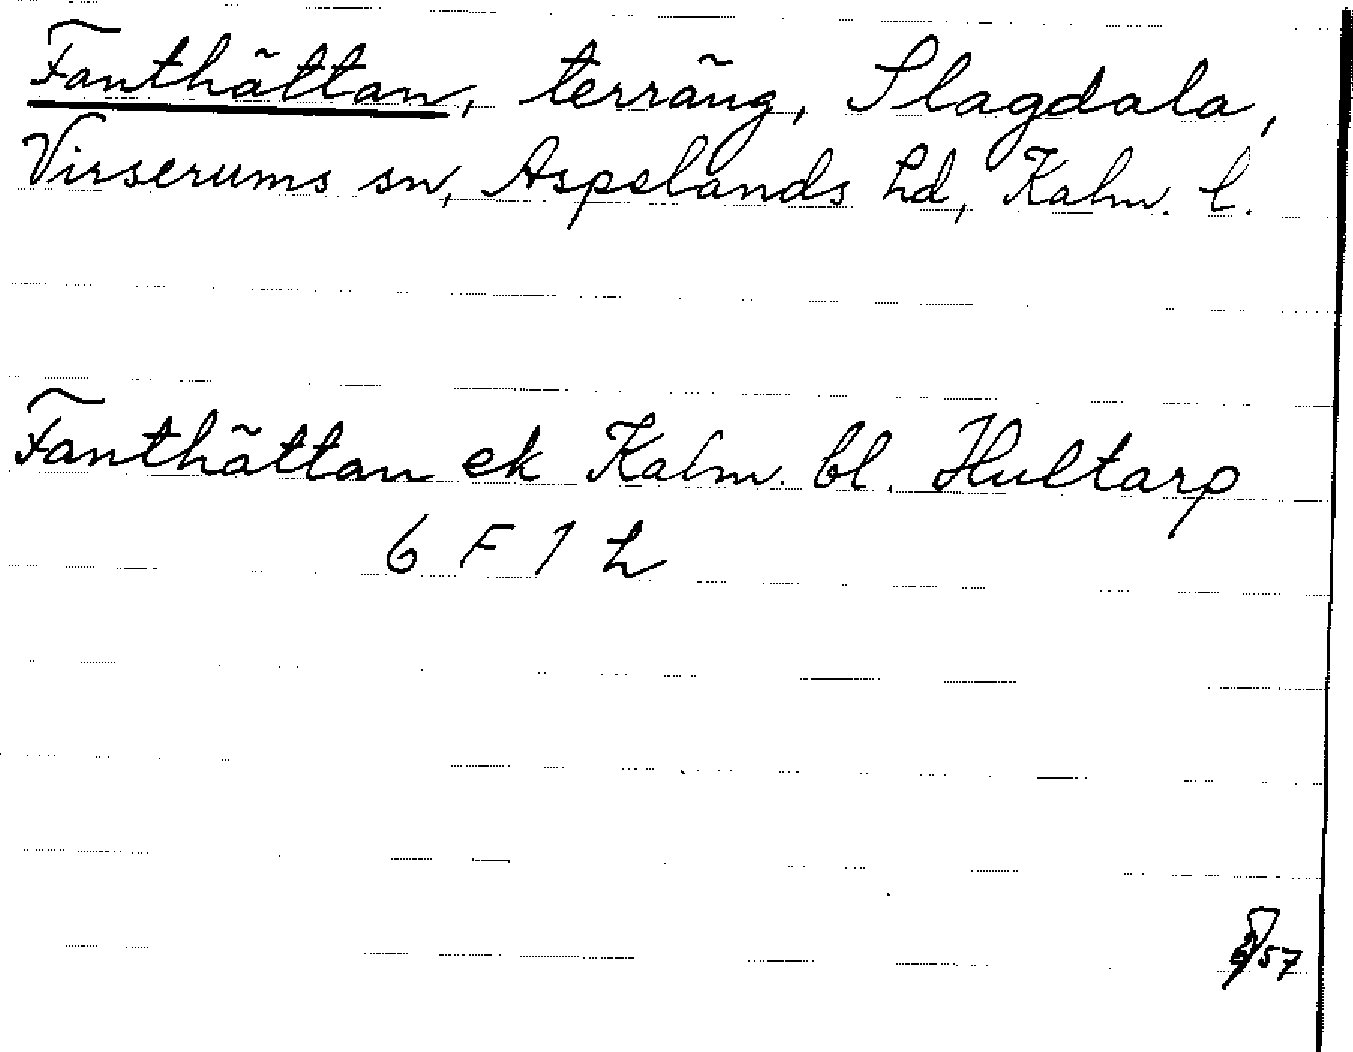 Fanthättan, terräng, Slagdala,
Virserums sn, Aspelands hd, Kalm. l.
Fanthättan ek Kalm. bl. Hultarp
6 F 1 h
57